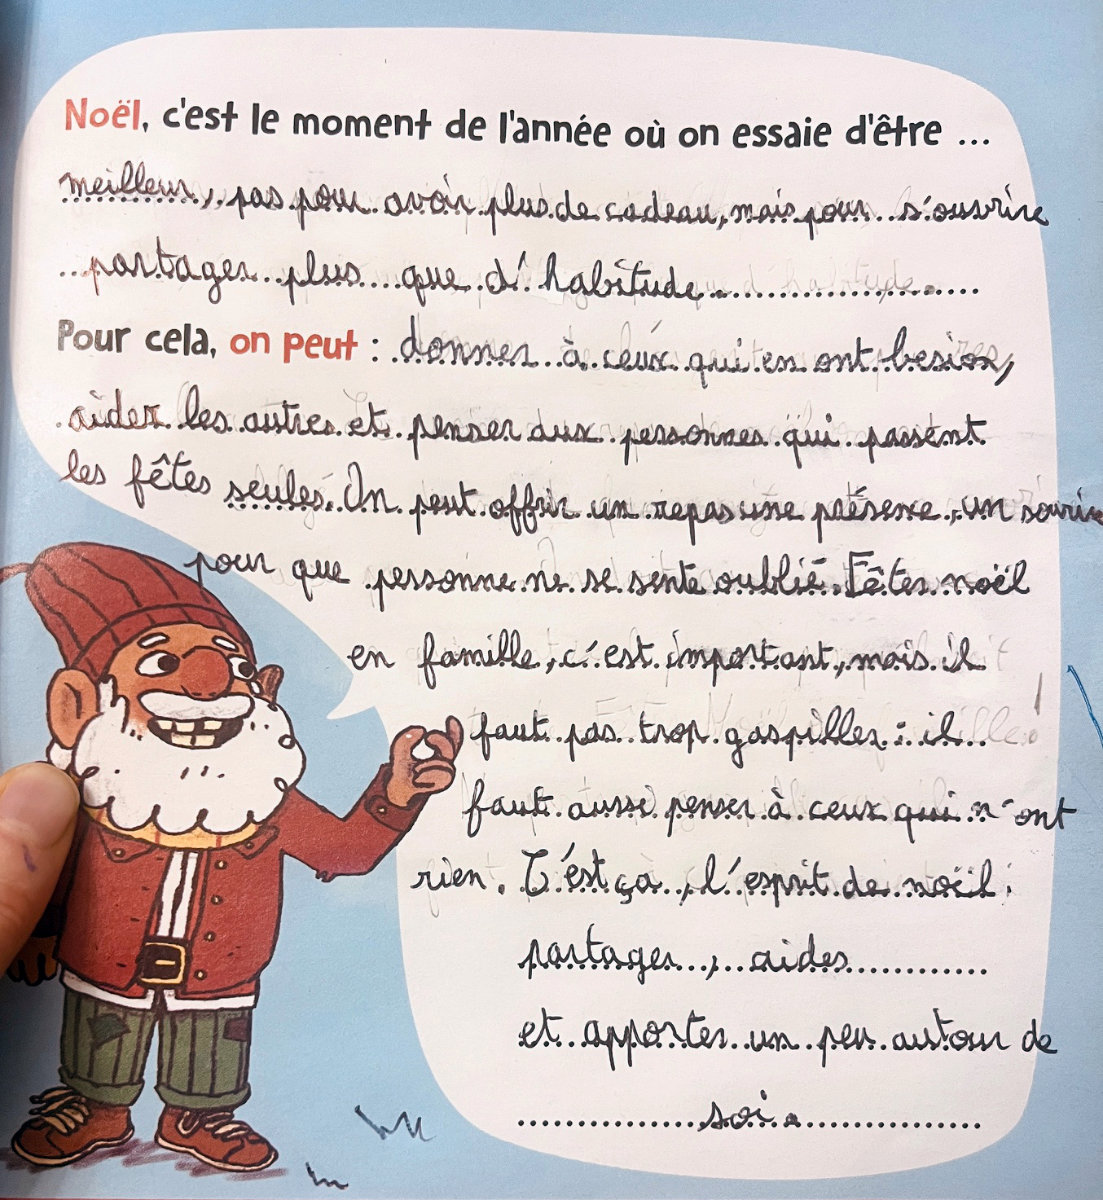 Noël, c'est le moment de l'année où on essaie d'être ...
meilleur, pas pour avoir plus de cadeau, mais pour s'ouvrire
partager plus que d'habitude.
Pour cela, on peut : donner à ceux qui en ont besion,
aider les autres et penser aux personnes qui passent
les fêtes seules. On peut offrir un repas une présence, un sourire
pour que personne ne se sente oublié. Fêter noël
en famille, c'est important, mais il
faut pas trop gaspiller : il
faut aussi penser à ceux qui n'ont
rien. C'est ça, l'esprit de noël :
partager, aider
et apporter un peu autour de
soi.